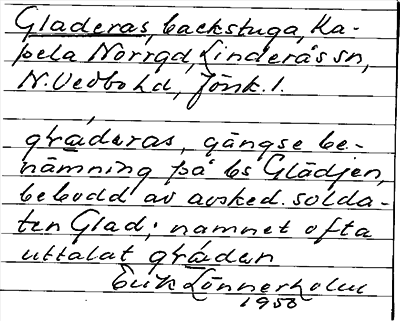 Gladeras, backstuga, Ka-
pela Norrgd, Linderås sn,
N. Vedbo hd, Jönk. l.
gráderas, gängse be-
nämning på bs Glädjen,
bebodd av avsked. solda-
ten Glad; namnet ofta
uttalat gráden
Erik Lönnerholm
1950